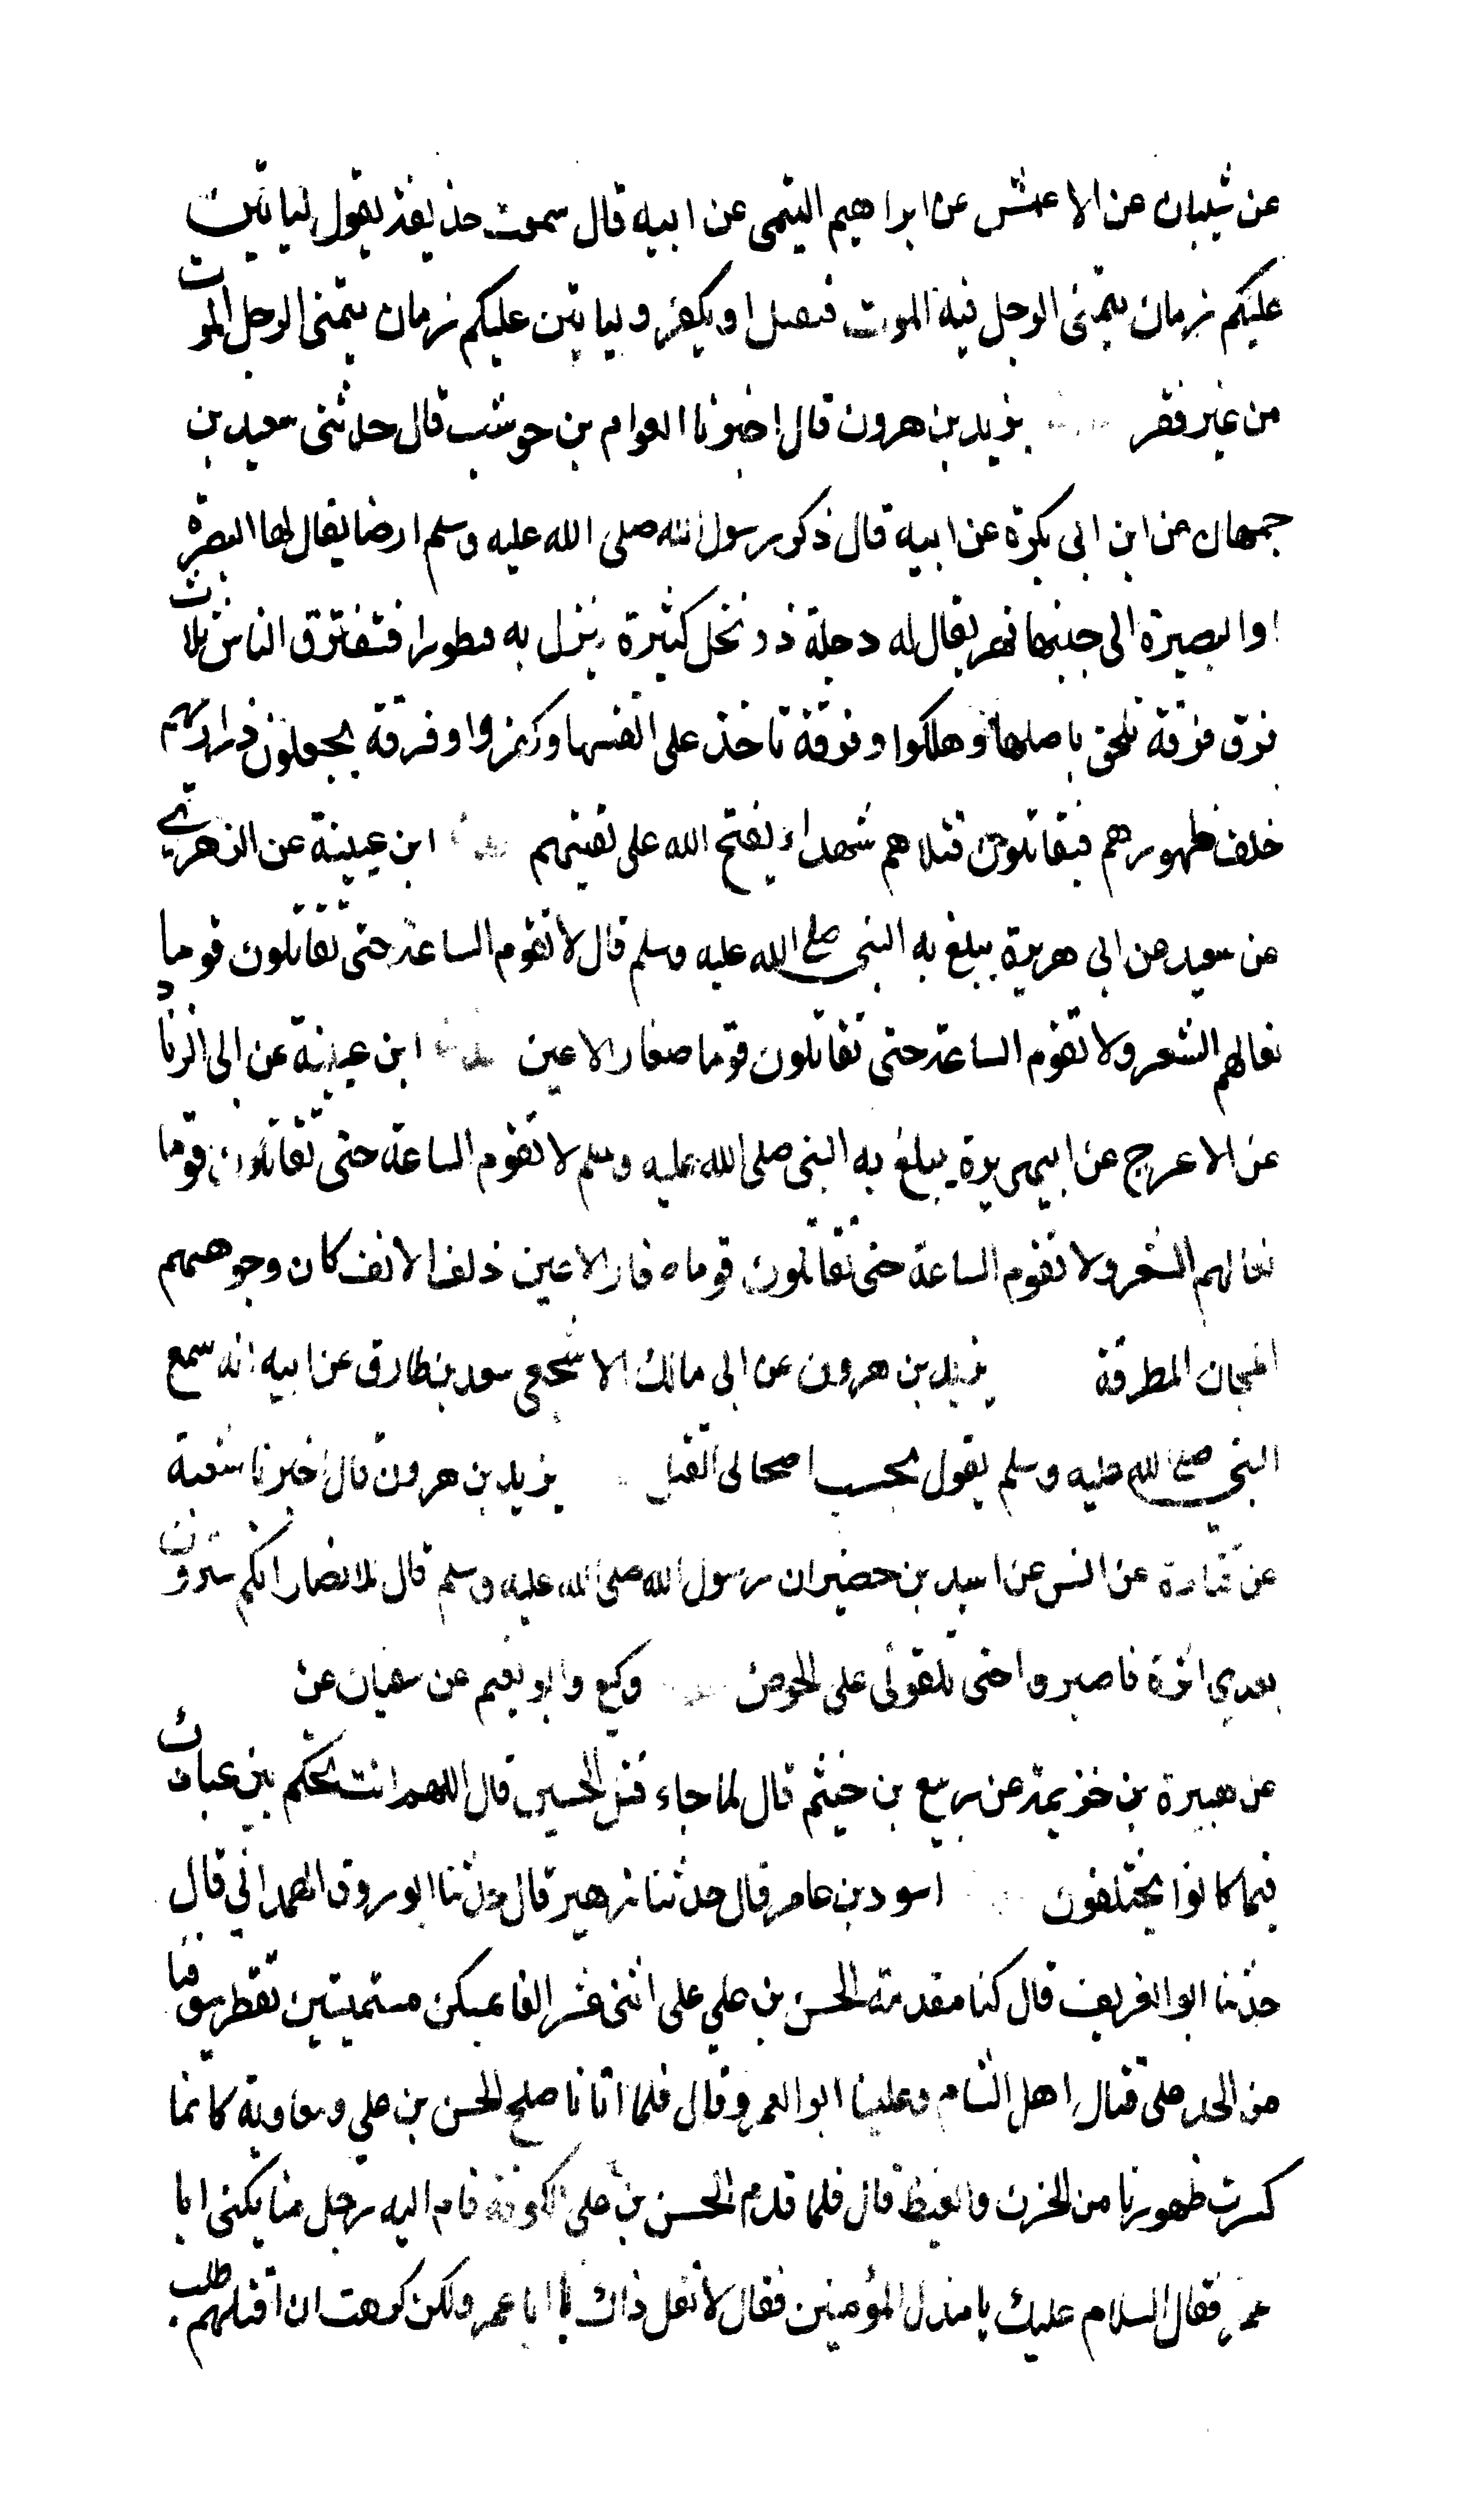 عن شيبان عن الاعمش عن ابراهيم التيمى عن ابيه قال سمعت حذيفة يقول لياتين
عليكم زمان يتمنى الرجل فيه الموت فيقتل او يكفر ولياتين عليكم زمان يتمنى الرجل الموت
من غير فقر يزيد بن هرون قال اخبرنا العوام بن حوشب قال حدثنى سعيد بن
جمهان عن ابن ابى بكرة عن ابيه قال ذكر رسول الله صلى الله عليه وسلم ارضا يقال لها البصرة
او البصيرة الى جنبها نهر يقال له دجلة ذو نخل كثيرة ينزل به قطورا فتفترق الناس ثلاث
فرق فرقة تلحق باصلها وهلكوا وفرقة تاخذ على انفسها وكفروا وفرقة يجعلون ذراريهم
خلف ظهورهم فيقاتلون قتلاهم شهداء يفتح الله على بقيتهم ابن عيينة عن الزهري
عن سعيد عن ابى هريرة يبلغ به النبي صلى الله عليه وسلم قال لا تقوم الساعة حتى تقاتلون قوما
نعالهم الشعر ولا تقوم الساعة حتى تقاتلون قوما صغار الاعين ابن عيينة عن ابى الزناد
عن الاعرج عن ابيهريرة يبلغ به النبى صلى الله عليه وسلم لا تقوم الساعة حتى تقاتلون قوما
نعالهم الشعر ولا تقوم الساعة حتى تقاتلون قوما صغار الاعين ذلف الانف كان وجوههم
المجان المطرقة يزيد بن هرون عن ابى مالك الاشجعى سعد بن طارق عن ابيه انه سمع
النبي صلى الله عليه وسلم يقول بحسب اصحابى القتل يزيد بن هرون قال اخبرنا شعبة
عن قتادة عن انس عن اسيد بن حضير ان رسول الله صلى الله عليه وسلم قال للانصار انكم سترون
بعدي اثرة فاصبروا حتى تلقونى على الحوض وكيع وابو نعيم عن سفيان عن
عن هبيرة بن خزيمة عن ربيع بن خيثم قال لما جاء قتل الحسين قال اللهم انت تحكم بين عبادك
فيما كانوا يختلفون اسود بن عامر قال حدثنا زهير قال حدثنا ابو روق الهمدانى قال
حدثنا ابو الغريف قال كنا مقدمة الحسن بن علي على اثنى عشر الفا بمسكن مستميتين تقطر سيوفنا
من الحد على قتال اهل الشام وعلينا ابو العمر وقال فلما اتانا صلح الحسن بن علي ومعاوية كانما
كسرت ظهورنا من الحزن والغيظ قال فلما قدم الحسن بن على الكوفة قام اليه رجل منا يكنى ابا
عمر فقال السلام عليك يا مذل المؤمنين فقال لا تقل ذاك يا ابا عمر ولكن كرهت ان اقتلهم طلب